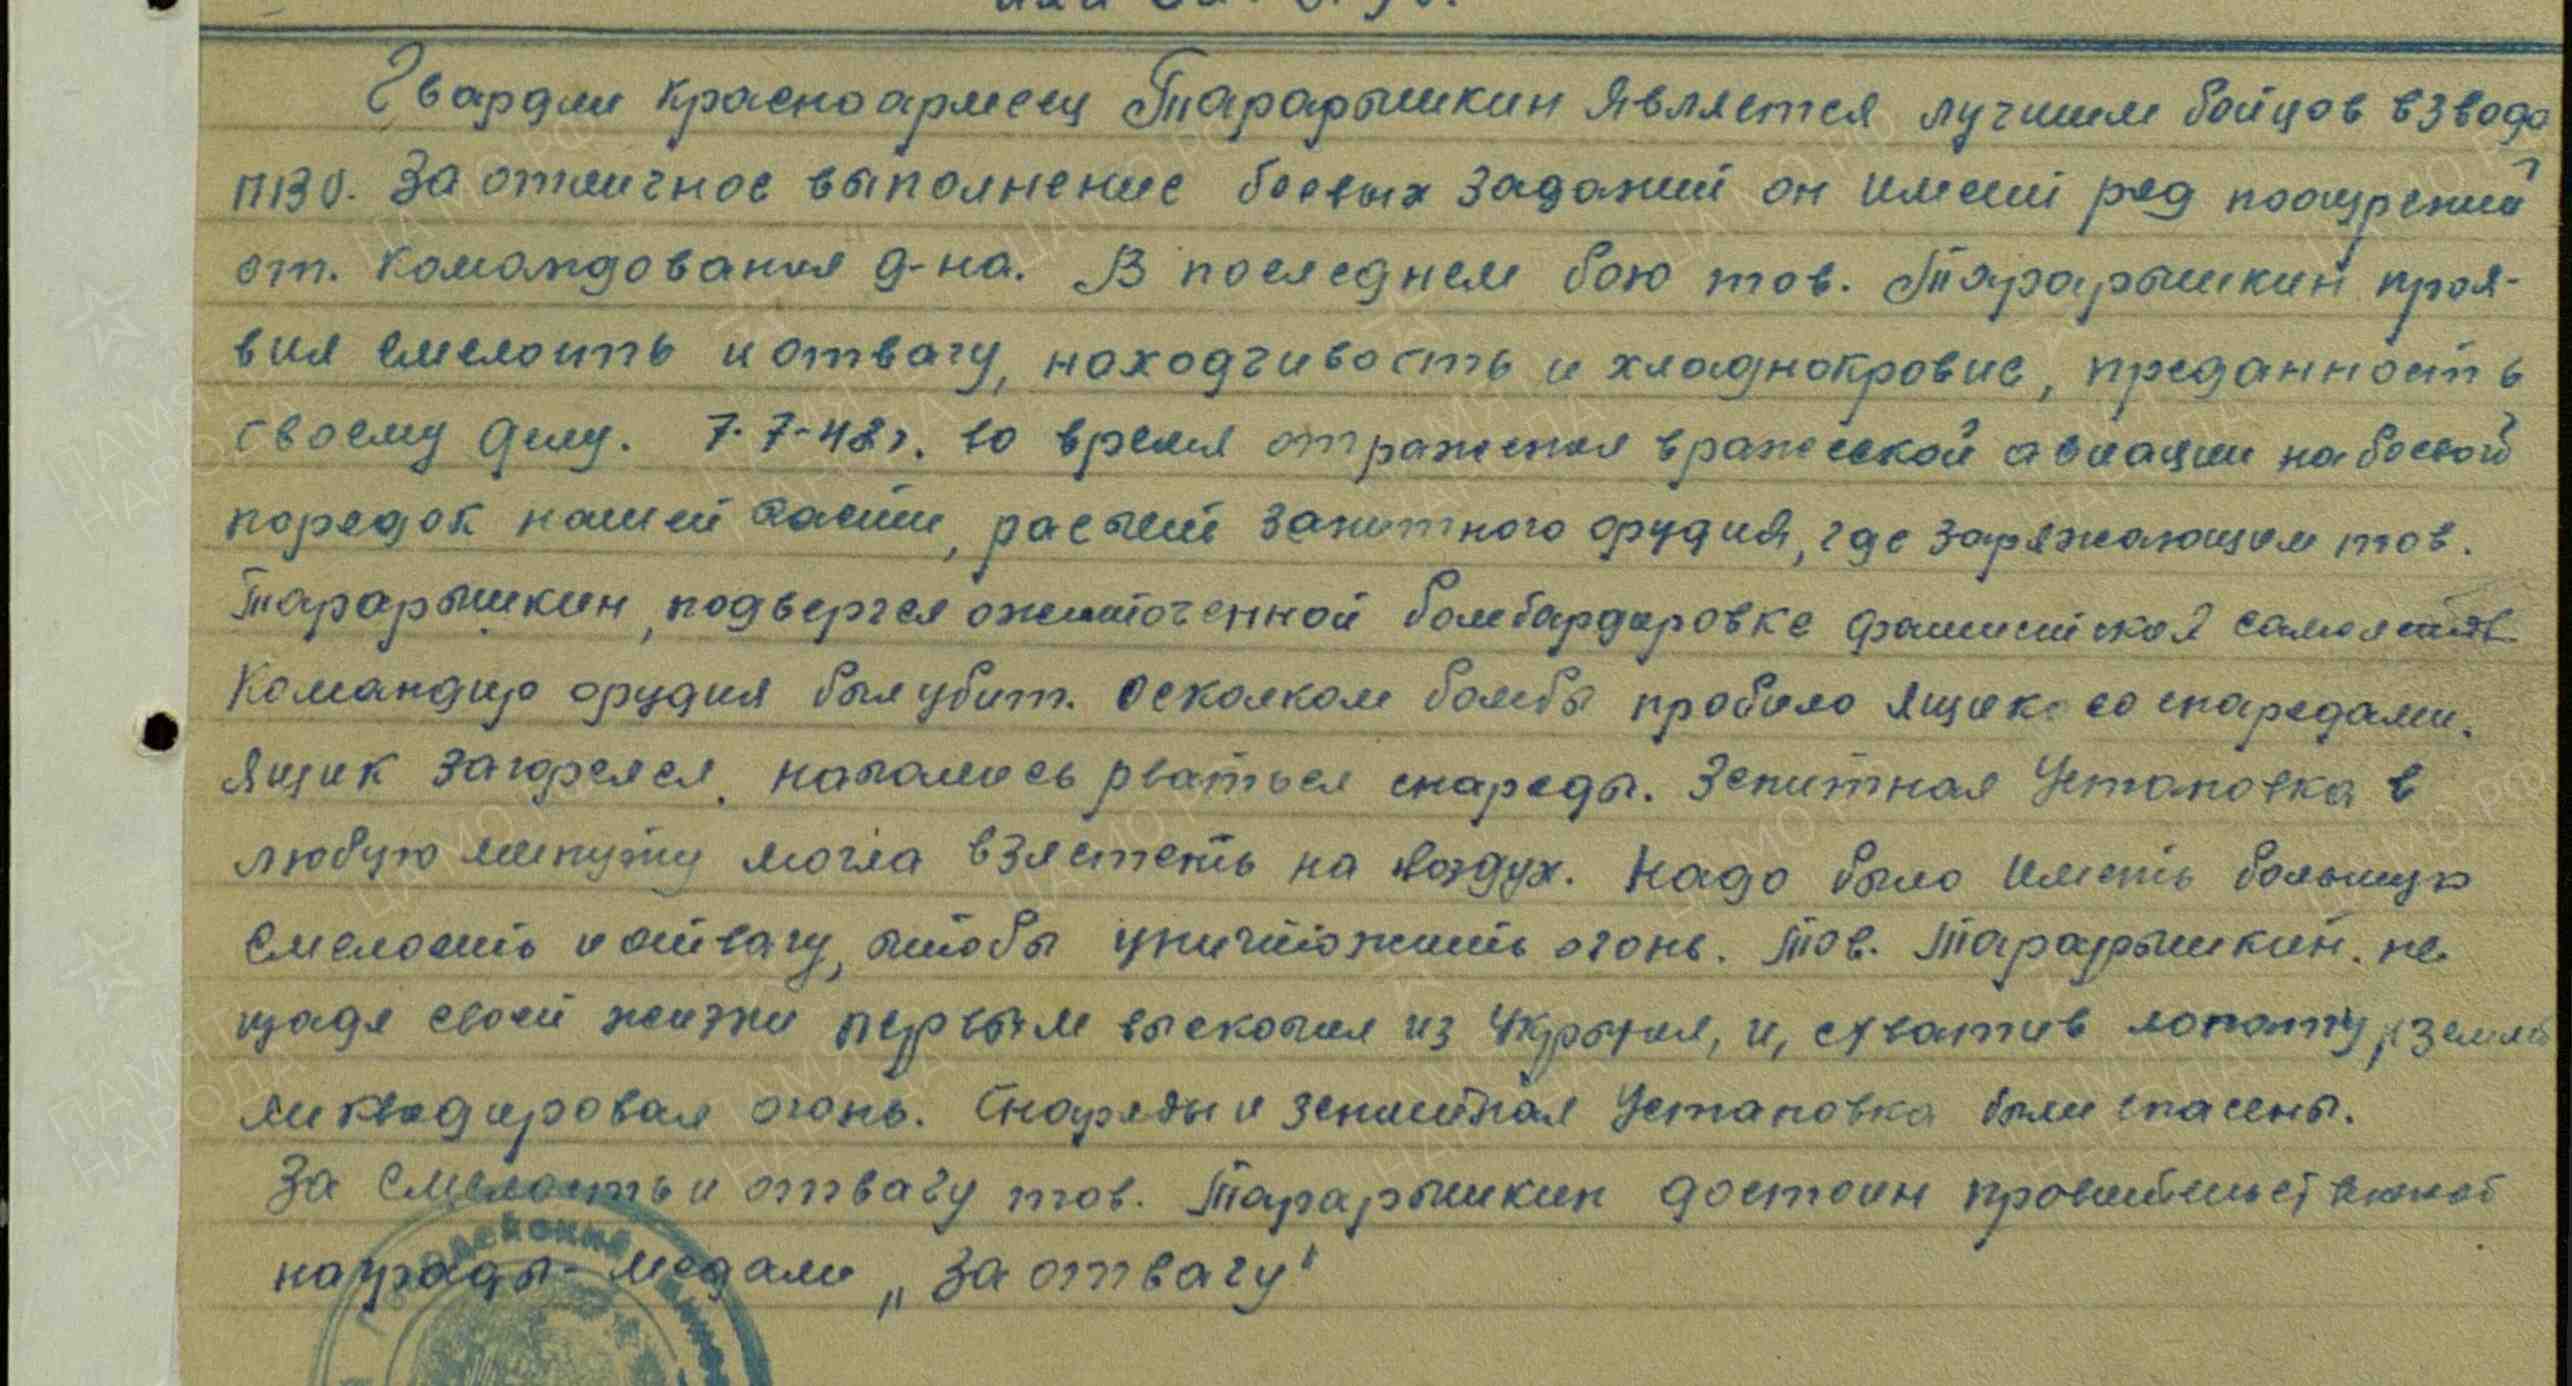 Гвардии красноармеец Тарарышкин является лучшим бойцов взвода
ПВО. За отличное выполнение боевых заданий он имеет ряд поощрений
от. командования д-на. В последнем бою тов. Тарарышкин проя-
вил смелость и отвагу, находчивость и хладнокровие, преданность
своему делу. 7.7-42г. во время отражения вражеской авиации на боевой
порядок нашей части, расчет зенитного орудия, где заряжающим тов.
Тарарышкин, подвергся ожесточенной бомбардировке фашистской
Командир орудия был убит. Осколком бомбы пробило ящик со снарядами.
Ящик загорелся. начались рваться снаряды. Зенитная установка в
любую минуту могла взлететь на воздух. Надо было иметь большую
смелость и отвагу, чтобы уничтожить огонь. Тов. Тарарышкин. не
щадя своей жизни первым выскочил из укрытия, и, схватив лопату, землей
ликвидировал огонь. Снаряды и зенитная установка были спасены.
За смелость и отвагу тов. Тарарышкин достоин правительственной
награды - медали „За отвагу"
ПАМЯТЬ НАРОДА
ЦАМО РФ